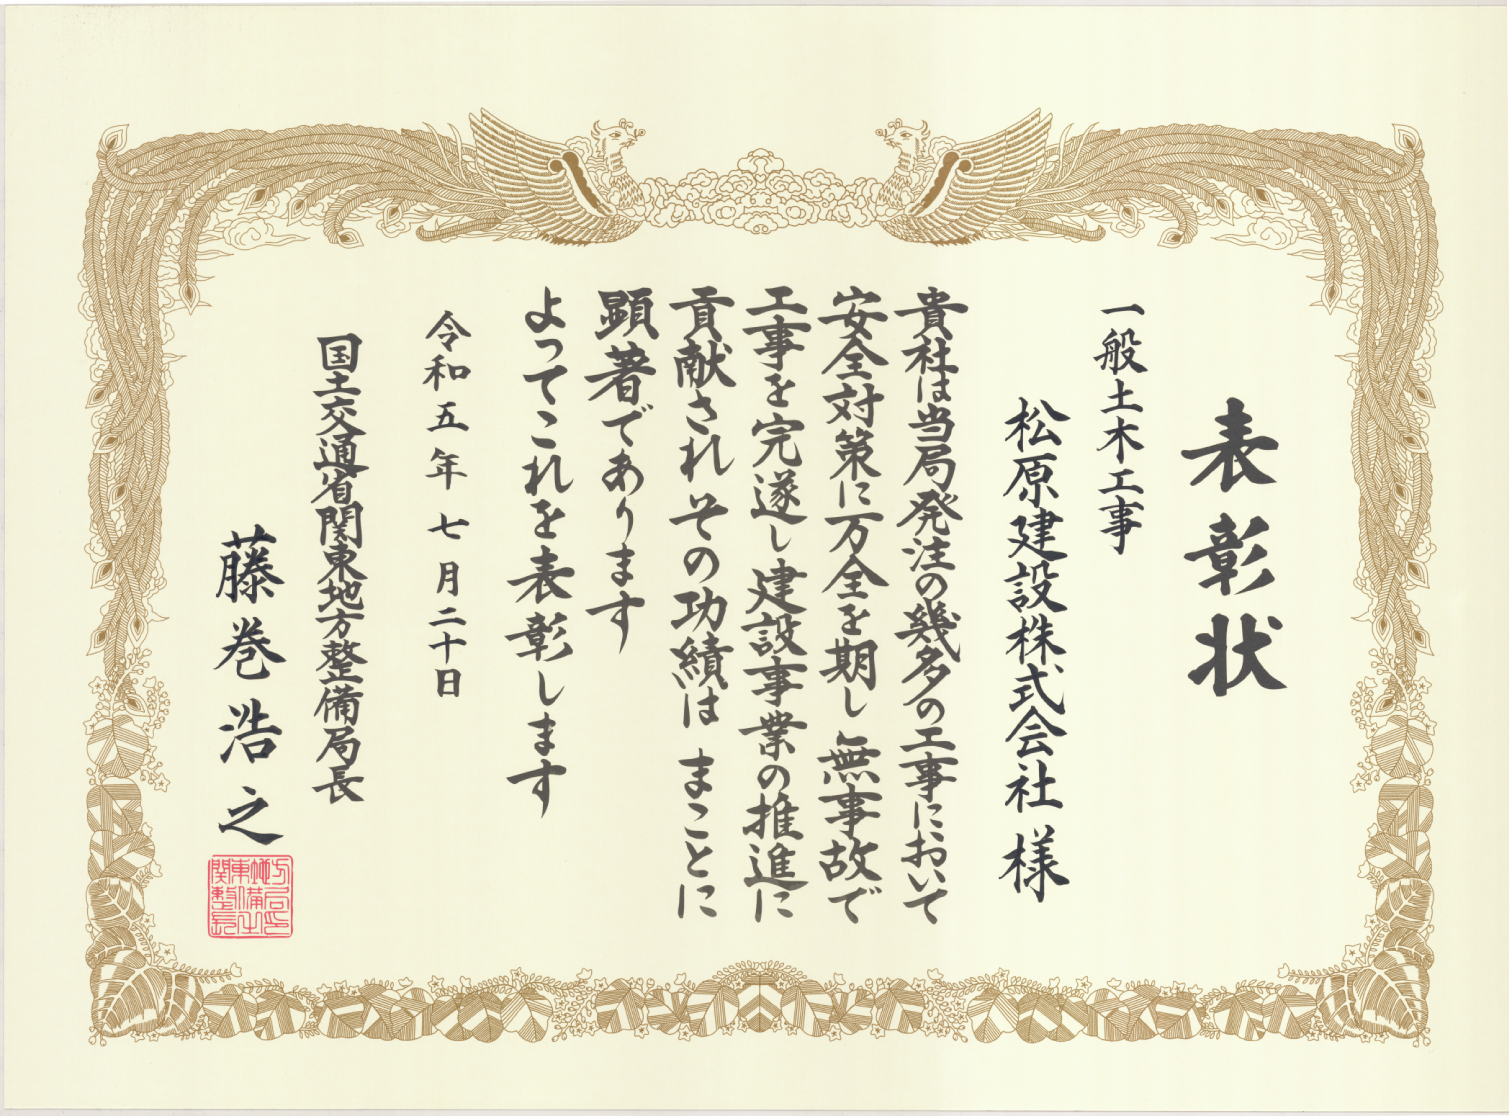 表彰状
一般土木工事
松原建設株式会社 様
貴社は当局発注の幾多の工事において
安全対策に万全を期し無事故で
工事を完遂し建設事業の推進に
貢献されその功績は まことに
顕著であります
よってこれを表彰します
令和五年七月二十日
国土交通省関東地方整備局長
藤巻浩之